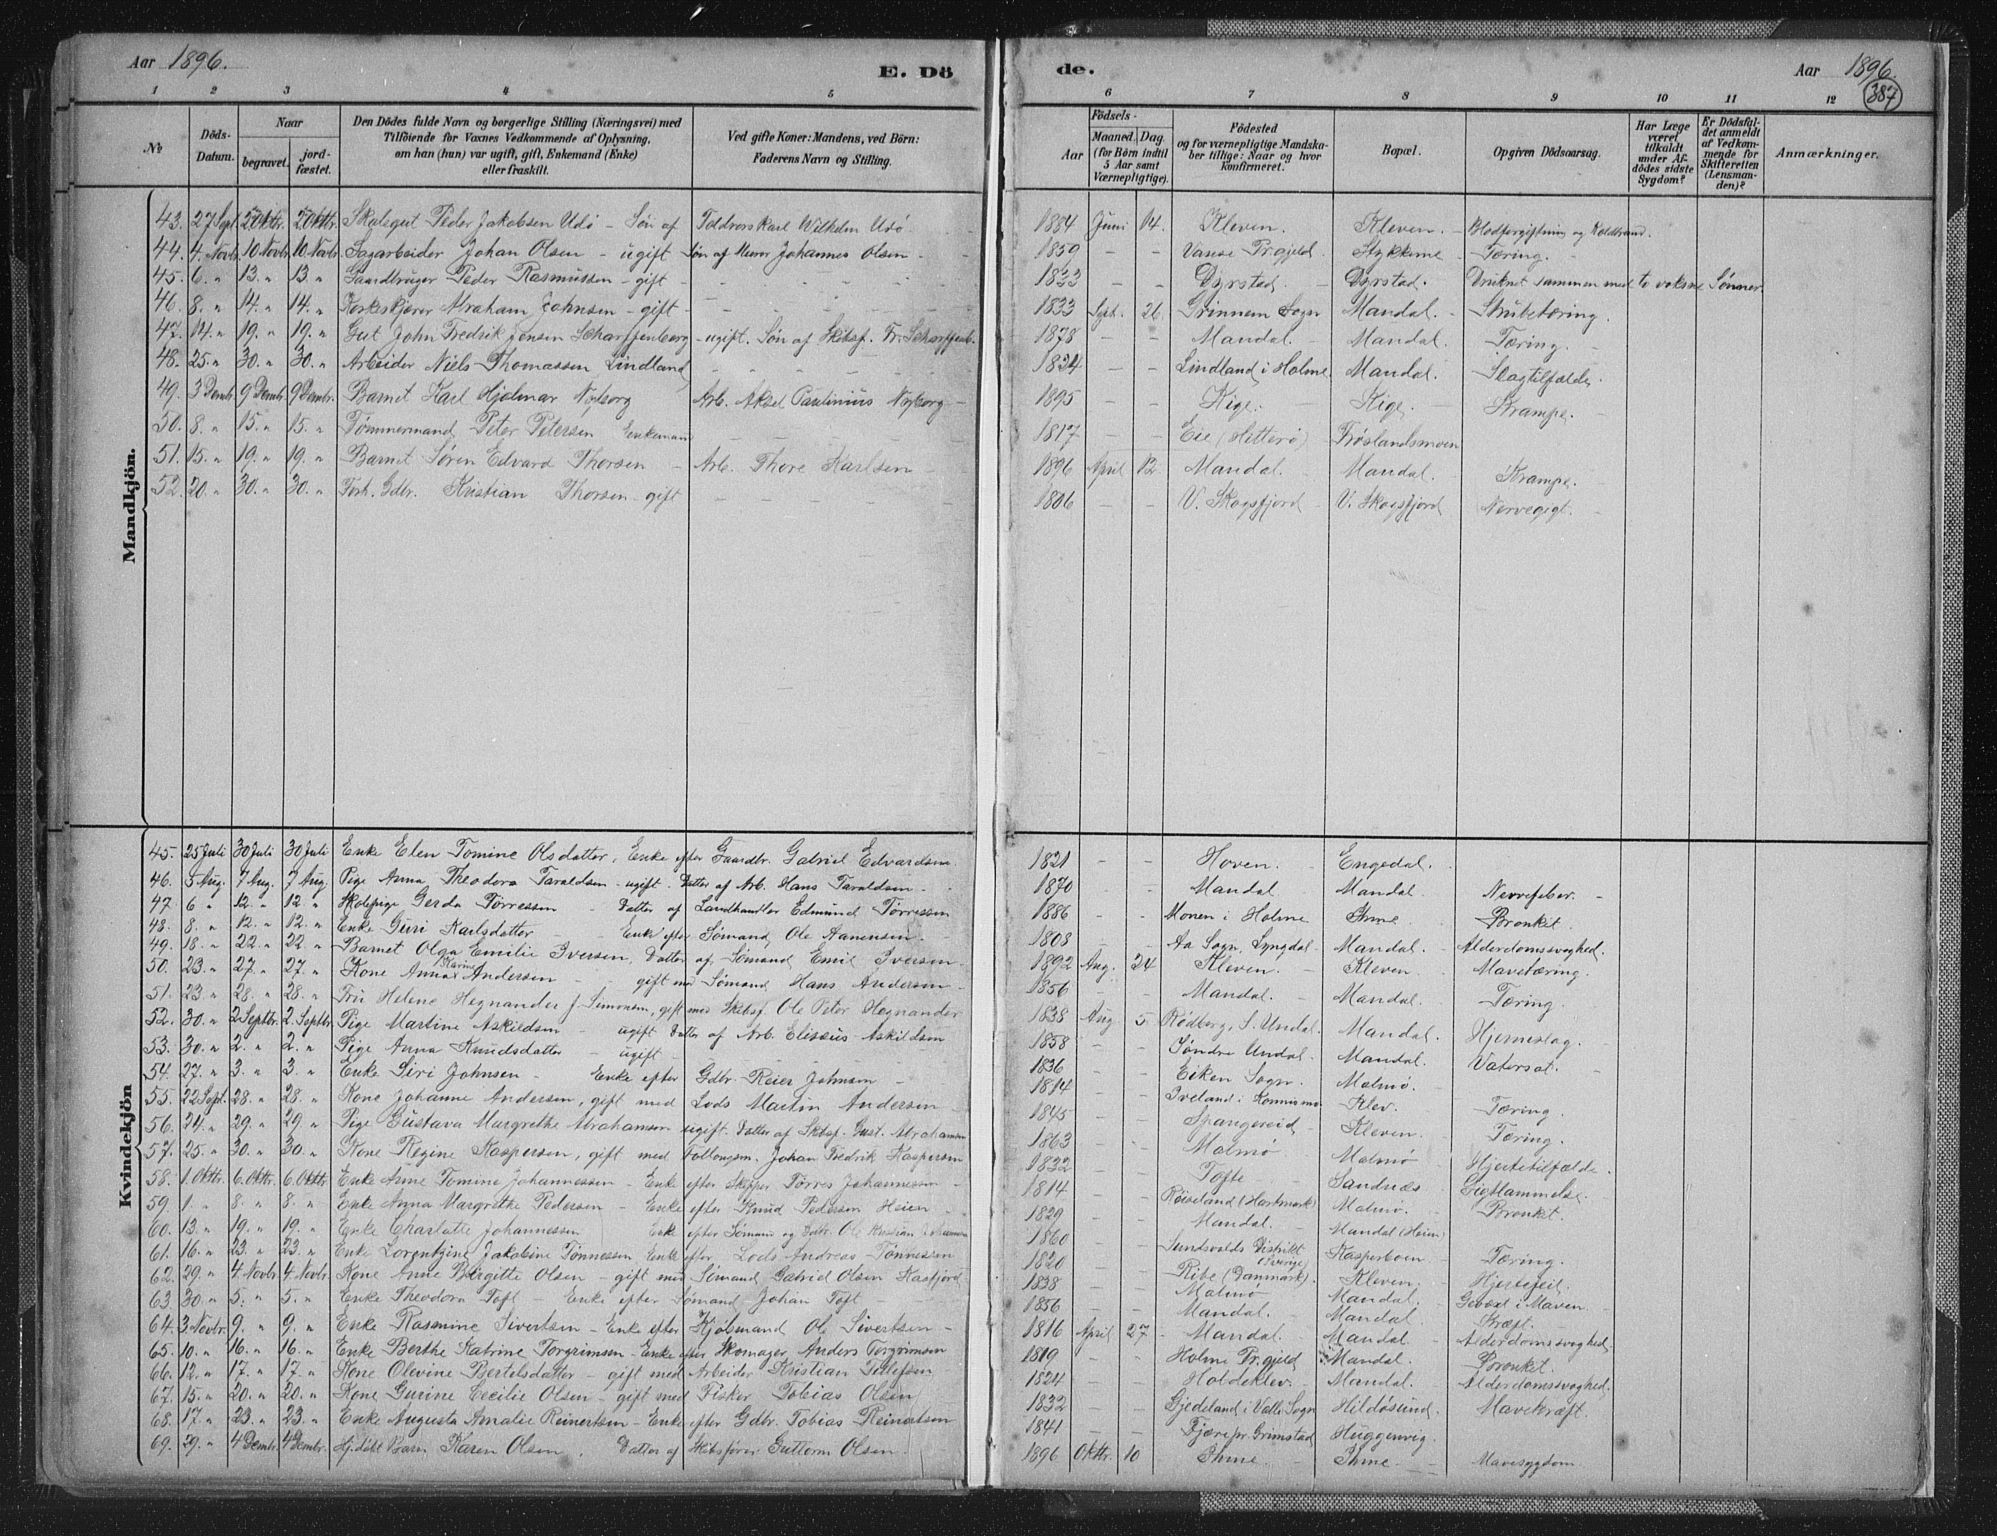 Aar 1896. E. Dö
de. Aar 1896.
387
1 2 3 4 5
6 7 8 9 10 11 12
No Döds-Datum. Naar begravet. jord-fæstet. Den Dödes fulde Navn og borgerlige Stilling (Næringsvei) med Tilföiende for Voxnes Vedkommende af Oplysning, om han (hun) var ugift, gift, Enkemand (Enke) eller fraskilt. Ved gifte Koner: Mandens, ved Börn: Faderens Navn og Stilling.
Födsels- Aar Maaned. Dag. (for Börn indtil 5 Aar samt Værnepligtige). Födested og for værnepligtige Mandskaber tillige: Naar og hvor konfirmeret. Bopæl. Opgiven Dödsaarsag. Har Læge været tilkaldt under Afdödes sidste Sygdom? Er Dödsfaldet anmeldt af Vedkommende for Skifteretten (Lensmanden)? Anmærkninger.
Mandkjön.
43. 27 Sept. 2 Oktbr. 2 Oktbr. Skolegut Peder Jakobsen Udö – Søn af Toldvorskarl Wilhelm Udö 1884 Juni 14. Kleven. Kleven. Blodforgiftning og Koldbrand.
44. 4. Novbr. 10 Novbr. 10 Novbr. Sagarbeider Johan Olsen – ugift Søn af Murer Johannes Olsen 1859 – – Vanse Prgjeld. Stykkerne – Tæring.
45. 6. " 13. " 13. " Gaardbruger Peder Rasmussen – gift – 1833 – – Dyrstad. Dyrstad. Druknet sammen med to voksne Sønner.
46. 8. " 14. " 14. " Korkskjærer Abraham Johnsen – gift – 1833 Sept. 26. Grinnem Sogn Mandal. – Strubetæring.
47. 14. " 19. " 19. " Gut John Fredrik Jensen Scharffenberg – ugift. Søn af Skibsf. Fr. Scharffenb. 1878 – – Mandal. – Mandal. Tæring.
48. 25. " 30. " 30. " Arbeider Niels Thomassen Lindland 1824 – – Lindland i Holme. Mandal. Slagtilfælde.
49. 3 Dembr. 9 Dembr. 9 Dembr. Barnet Karl Hjalmar Nyborg Arb. Aksel Paulinius Nyborg – 1895 – – Kige. – Kige. – Krampe.
50. 8. " 15. " 15. " Tømmermand Peter Petersen Enkemand 1817 – – Eie (Hitterø) Frøslandsmoen
51. 15. " 19. " 19. " Barnet Søren Edvard Thorsen – Arb. Thore Karlsen – 1896 April 12. Mandal. – Mandal. Krampe.
52. 20. " 30. " 30. " Forh. Gdbr. Kristian Thorsen – gift – 1806 – – V. Skogsfjord V. Skogsfjord Nervegigt.
Kvindekjön
45. 25 Juli 30 Juli 30 Juli Enke Elen Tomine Olsdatter, Enke efter Gaardbr. Gabriel Edvardsen. 1821 – – Hoven. – Engedal.
46. 5 Aug. 7 Aug. 7 Aug. Pige Anna Theodora Taraldsen – ugift. Datter af Arb. Hans Taraldsen – 1870 – – Mandal – Mandal Nervefeber.
47. 6 " 12 " 12 " Skolepige Gerda Tørressen – Datter af Landhandler Edmund Tørressen 1886 – – Monen i Holme Ihme – Bronket.
48. 8. " 12. " 12. " Enke Guri Karlsdatter – Enke efter Sømand Ole Aanensen. 1808 – – Aa Sogn, Lyngdal – Mandal. Alderdomssvaghed.
49. 18. " 22. " 22. " Barnet Olga Emilie Iversen, Datter af Sømand Emil Iversen – 1892 Aug. 24 Kleven. – Kleven. Mavetæring.
50. 23. " 27. " 27. " Kone Anna Karine Andersen – gift med Sømand Hans Andersen – 1856 – – Mandal. – Mandal. Tæring.
51. 23. " 28. " 28. " Fru Helene Hegnander f. Simonsen, gift med Skibsf. Ole Peter Hegnander 1838 Aug. 5. Rødberg, S. Undal. Mandal. – Hjerneslag.
52. 30. " 2 Septbr. 2. Septbr. Pige Martine Askildsen – ugift Datter af Arb. Elisæus Askildsen 1858 – – Søndre Undal. Mandal. Vatersot.
53. 30. " 2. " 2. " Pige Anna Knudsdatter – ugift – 1836 – – Eiken Sogn. – Malmø.
54. 27. " 3. " 3. " Enke Siri Johnsen – Enke efter Gdbr. Reier Johnsen – 1814 – – Iveland i Klev.
55. 22 Sept. 28. " 28. " Kone Johanne Andersen, gift med Lods Martin Andersen – 1845 – – Spangereid – Kleven. – Tæring.
56. 24. " 29. " 29. " Pige Gustava Margrethe Abrahamsen ugift. Datter af Skibsf. Gust. Abrahamsen 1863 – – Malmø – Malmø – Tæring.
57. 25. " 30. " 30. " Kone Regine Kaspersen, gift med Johan Fredrik Kaspersen 1832 – – Tofte – Sandnæs. Hjertetilfælde.
58. 1. Oktbr. 6. Oktbr. 6 Oktbr. Enke Anne Tomine Johannessen – Enke efter Skipper Tørres Johannessen – 1814 – – Røiseland (Harkmark) Malmø.
59. 1. " 8 " 8. " Enke Anna Margrethe Pedersen – Enke efter Knud Pedersen Heien – 1829 – – Mandal. Mandal (Heien) Bronket.
60. 13. " 19. " 19. " Enke Charlotte Johannessen Enke efter Sømand 1860 – – Sundsvalds Distrikt (Sverige) Kasperboen – Tæring.
61. 16. " 23. " 23. " Enke Lorentzine Jakobine Tønnessen Enke efter Lods Andreas Tønnessen 1820 – – Ribe (Danmark). Kleven. – Hjertefeil.
62. 29. " 4. Novbr. 4. Novbr. Kone Anne Birgitte Olsen – gift med Sømand Gabriel Olsen 1838 – – Malmø Mandal. –
63. 30. " 5. " 5. " Enke Theodora Toft – Enke efter Sømand Johan Toft 1856 – – Mandal. Mandal Kræft.
64. 3 Novbr. 9. " 9. " Enke Rasmine Sivertsen – Enke efter Kjøbmand Ole Sivertsen – 1816 April 27. Mandal. Mandal. – Alderdomssvaghed.
65. 10. " 16. " 16. " Enke Berthe Katrine Torgrimsen – Enke efter Skomager Anders Torgrimsen 1819 – – Holme Prgjeld Mandal. Bronket.
66. 12. " 17. " 17. " Kone Olevine Bertelsdatter – gift med Arbeider Kristian Detlefsen 1824 – – Holdeklev. – Mandal. Alderdomssvaghed.
67. 15. " 20. " 20. " Kone Gurine Cecilie Olsen – gift med Fisker Tobias Olsen 1832 – – Gjedeland i Valle Sogn Hildøsund. Mavekræft. –
68. 17. " 23. " 23. " Enke Augusta Amalie Reinertsen – Enke efter Gdbr. Tobias Reinertsen 1841 – – Fjære pr. Grimstad Huggenvig. –
69. 29. " 4 Dembr. 4 Dembr. Hj. døbt Barn Karen Olsen. Datter af Skibsfører Guttorm Olsen. 1896 Oktbr. 10 Ihme – Ihme – Mavesygdom.